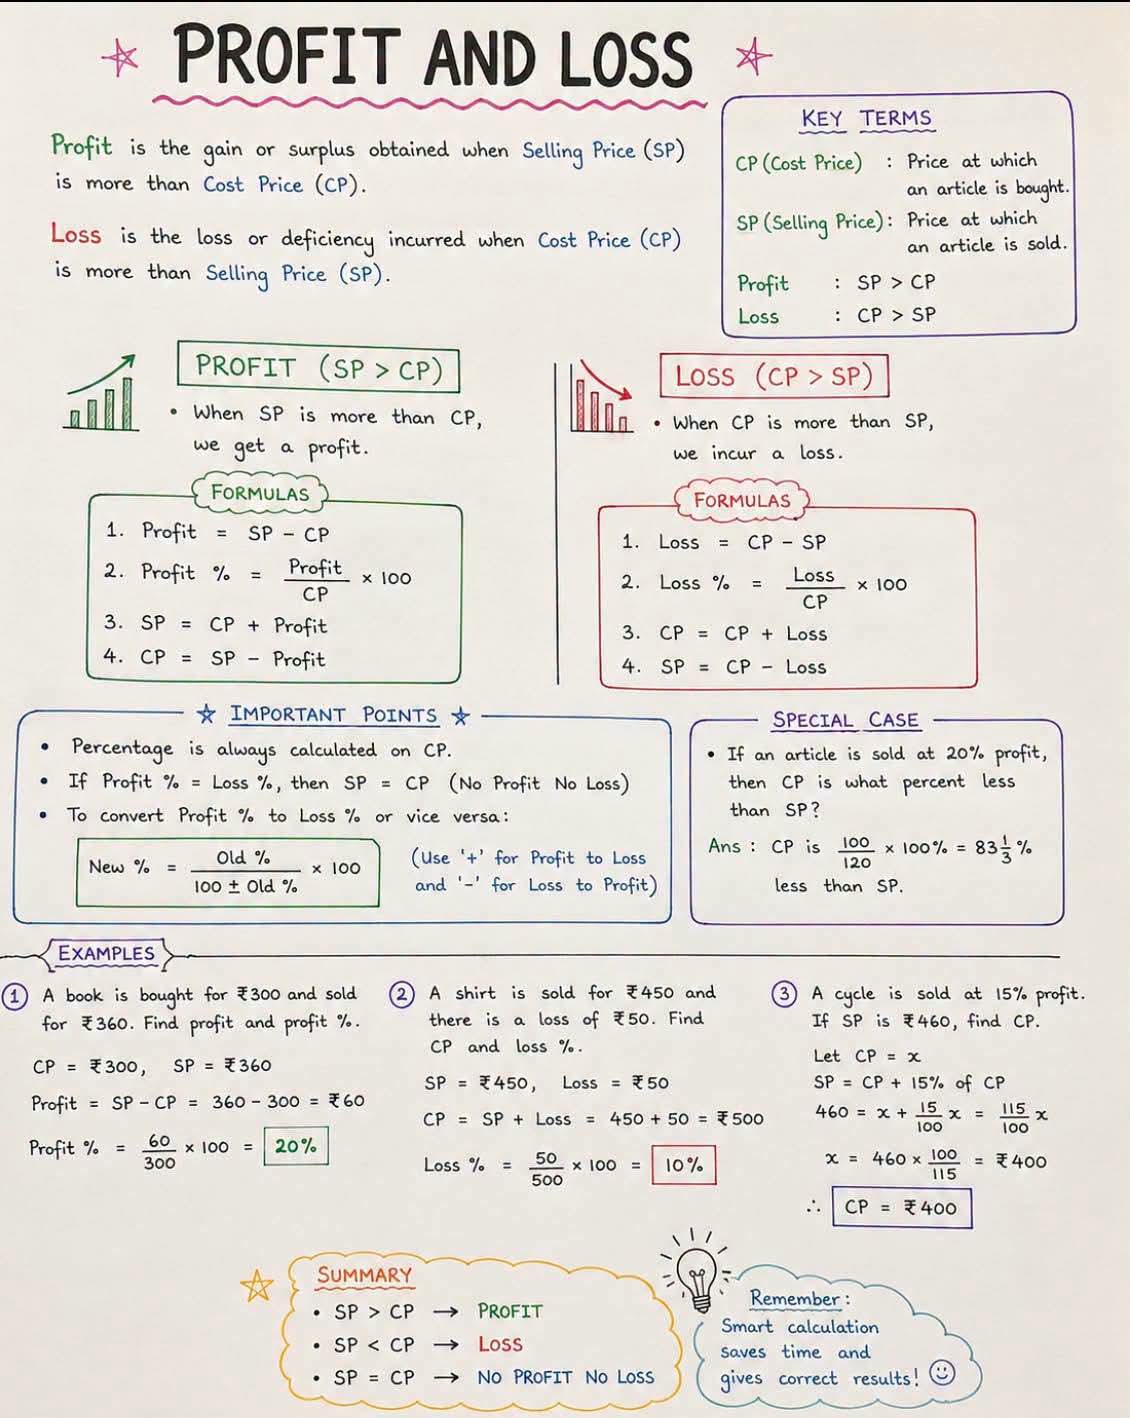 PROFIT AND LOSS
Profit is the gain or surplus obtained when Selling Price (SP)
is more than Cost Price (CP).
Loss is the loss or deficiency incurred when Cost Price (CP)
is more than Selling Price (SP).
KEY TERMS
CP (Cost Price) : Price at which
an article is bought.
SP (Selling Price): Price at which
an article is sold.
Profit : SP > CP
Loss : CP > SP
PROFIT (SP > CP)
• When SP is more than CP,
we get a profit.
FORMULAS
1. Profit = SP - CP
2. Profit % = Profit/CP × 100
3. SP = CP + Profit
4. CP = SP - Profit
LOSS (CP > SP)
• When CP is more than SP,
we incur a loss.
FORMULAS
1. Loss = CP - SP
2. Loss % = Loss/CP × 100
3. CP = CP + Loss
4. SP = CP - Loss
☆ IMPORTANT POINTS ☆
• Percentage is always calculated on CP.
• If Profit % = Loss %, then SP = CP (No Profit No Loss)
• To convert Profit % to Loss % or vice versa:
New % = Old %/100 ± Old % × 100
(Use '+' for Profit to Loss
and '-' for Loss to Profit)
SPECIAL CASE
• If an article is sold at 20% profit,
then CP is what percent less
than SP?
Ans : CP is 100/120 × 100% = 83 1/3 %
less than SP.
EXAMPLES
1 A book is bought for ₹300 and sold
for ₹360. Find profit and profit %.
CP = ₹300, SP = ₹360
Profit = SP - CP = 360 - 300 = ₹60
Profit % = 60/300 × 100 = 20%
2 A shirt is sold for ₹450 and
there is a loss of ₹50. Find
CP and loss %.
SP = ₹450, Loss = ₹50
CP = SP + Loss = 450 + 50 = ₹500
Loss % = 50/500 × 100 = 10%
3 A cycle is sold at 15% profit.
If SP is ₹460, find CP.
Let CP = x
SP = CP + 15% of CP
460 = x + 15/100 x = 115/100 x
x = 460 × 100/115 = ₹400
∴ CP = ₹400
SUMMARY
• SP > CP → PROFIT
• SP < CP → LOSS
• SP = CP → NO PROFIT NO LOSS
Remember :
Smart calculation
saves time and
gives correct results! ☺